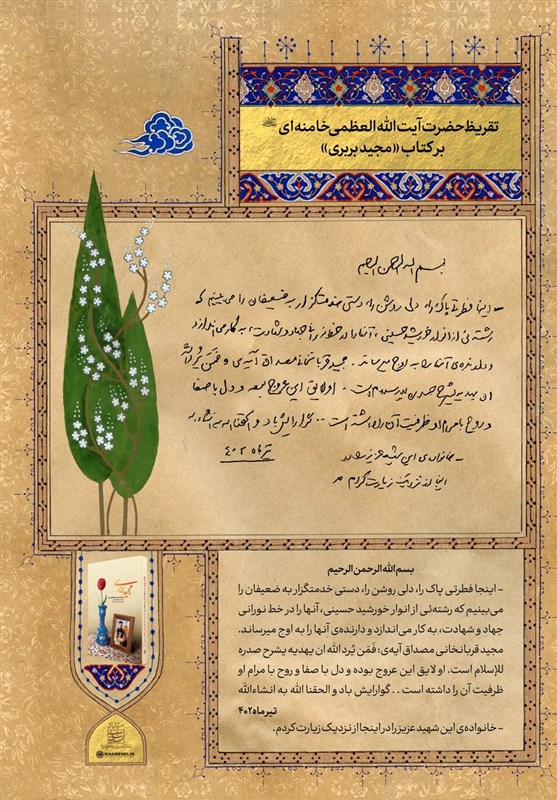 تقریظ حضرت آیت الله العظمی خامنه‌ای
بر کتاب «مجید بربری»
بسم الله الرحمن الرحیم
- اینجا فطرتی پاک را، دلی روشن را، دستی خدمتگزار به ضعیفان را می‌بینیم که
رشته‌ئی از انوار خورشید حسینی، آنها را در خط نورانی جهاد و شهادت، به کار می‌اندازد
و دارنده‌ی آنها را به اوج میرساند. مجید قربانخانی مصداق آیه‌ی: فَمَن یُرد الله
ان یهدیه یشرح صدره للإسلام است. او لایق این عروج بوده و دل با صفا
و روح با مرام او ظرفیت آن را داشته است . . گوارایش باد و الحقنا الله به انشاءالله
تیرماه ۴۰۲
- خانواده‌ی این شهید عزیز را در
اینجا از نزدیک زیارت کردم
بسم الله الرحمن الرحیم
- اینجا فطرتی پاک را، دلی روشن را، دستی خدمتگزار به ضعیفان را
می‌بینیم که رشته‌ئی از انوار خورشید حسینی، آنها را در خط نورانی
جهاد و شهادت، به کار می‌اندازد و دارنده‌ی آنها را به اوج میرساند.
مجید قربانخانی مصداق آیه‌ی: فَمَن یُرد الله ان یهدیه یشرح صدره
للإسلام است. او لایق این عروج بوده و دل با صفا و روح با مرام او
ظرفیت آن را داشته است . . گوارایش باد و الحقنا الله به انشاءالله
تیرماه ۴۰۲
- خانواده‌ی این شهید عزیز را در اینجا از نزدیک زیارت کردم.
KHAMENEI.IR